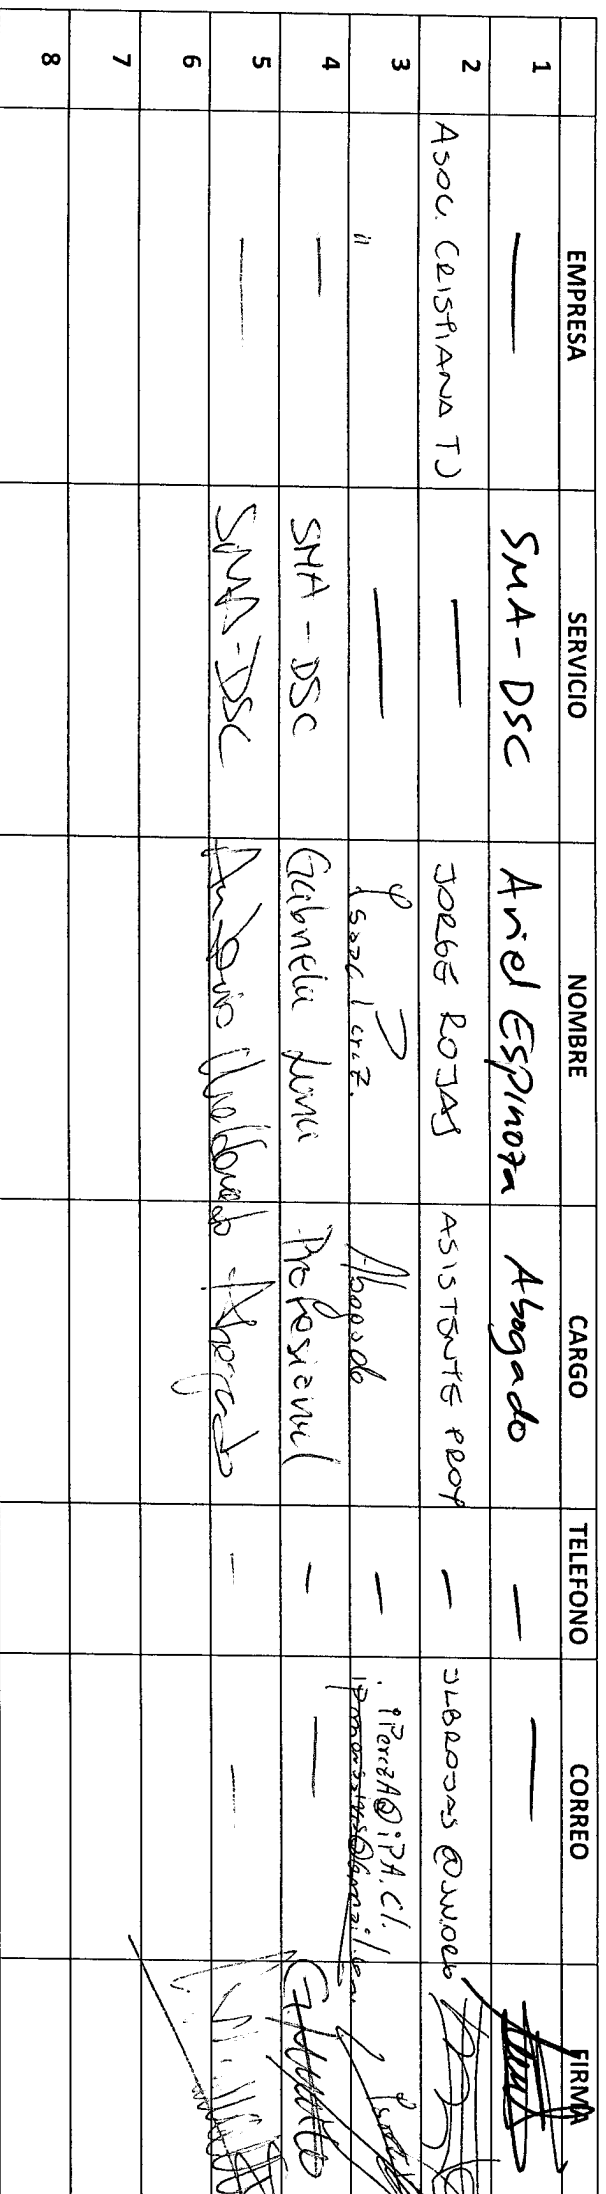 EMPRESA SERVICIO NOMBRE CARGO TELEFONO CORREO FIRMA
1 — SMA-DSC Ariel Espinoza Abogado — —
2 ASOC. CRISTIANA TJ — JORGE ROJAS ASISTENTE PROY — JLBROJAS@JW.ORG
3 " — Abogado —
4 — SMA-DSC Gabriela Profesional — —
5 — SMA-DSC Abogado — —
6
7
8